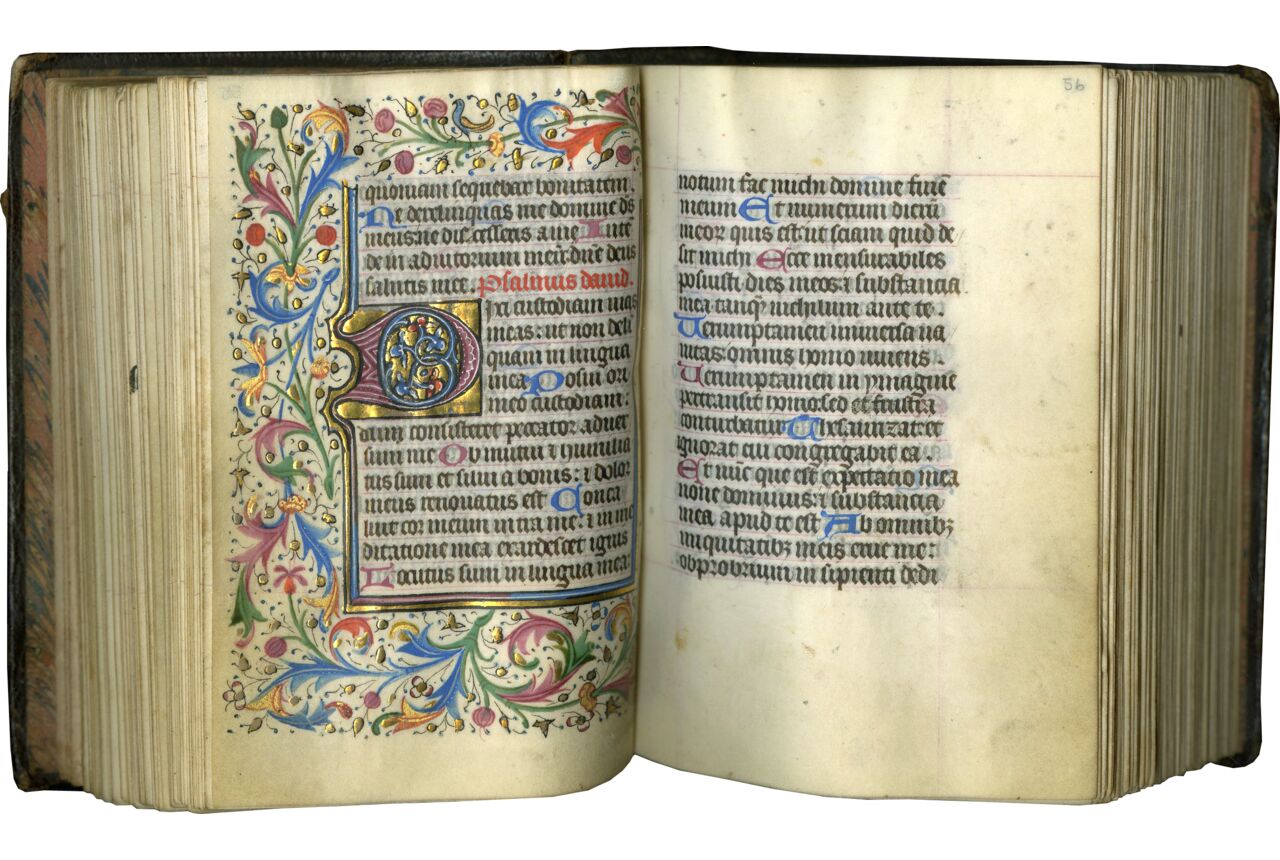 quoniam sequebar bonitatem
Ne derelinquas me domine ds
meus: ne discesseris a me Inte
de in adiutorium meū: dñe deus
salutis mee. Psalmus dauid.
Dixi custodiam uias
meas: ut non deli
quam in lingua
mea Posui ori
meo custodiam:
dum consisteret peccator aduer
sum me Obmutui et humilia
tus sum et silui a bonis: et dolor
meus renouatus est Conca
luit cor meum intra me: et in me
ditatione mea exardescet ignis
Locutus sum in lingua mea
56
notum fac michi domine finē
meum Et numerum dierū
meor quis est: ut sciam quid de
sit michi Ecce mensurabiles
posuisti dies meos: et substancia
mea tanq̄ nichilum ante te.
Uerumptamen uniuersa ua
nitas: omnis homo uiuens.
Uerumptamen in ymagine
pertransit homo: sed et frustra
conturbatur Thesaurizat et
ignorat cui congregabit ea.
Et nūc que est expectatio mea
none dominus: et substancia
mea apud te est Ab omnibꝫ
iniquitatibꝫ meis erue me:
obprobrium insipienti dedi